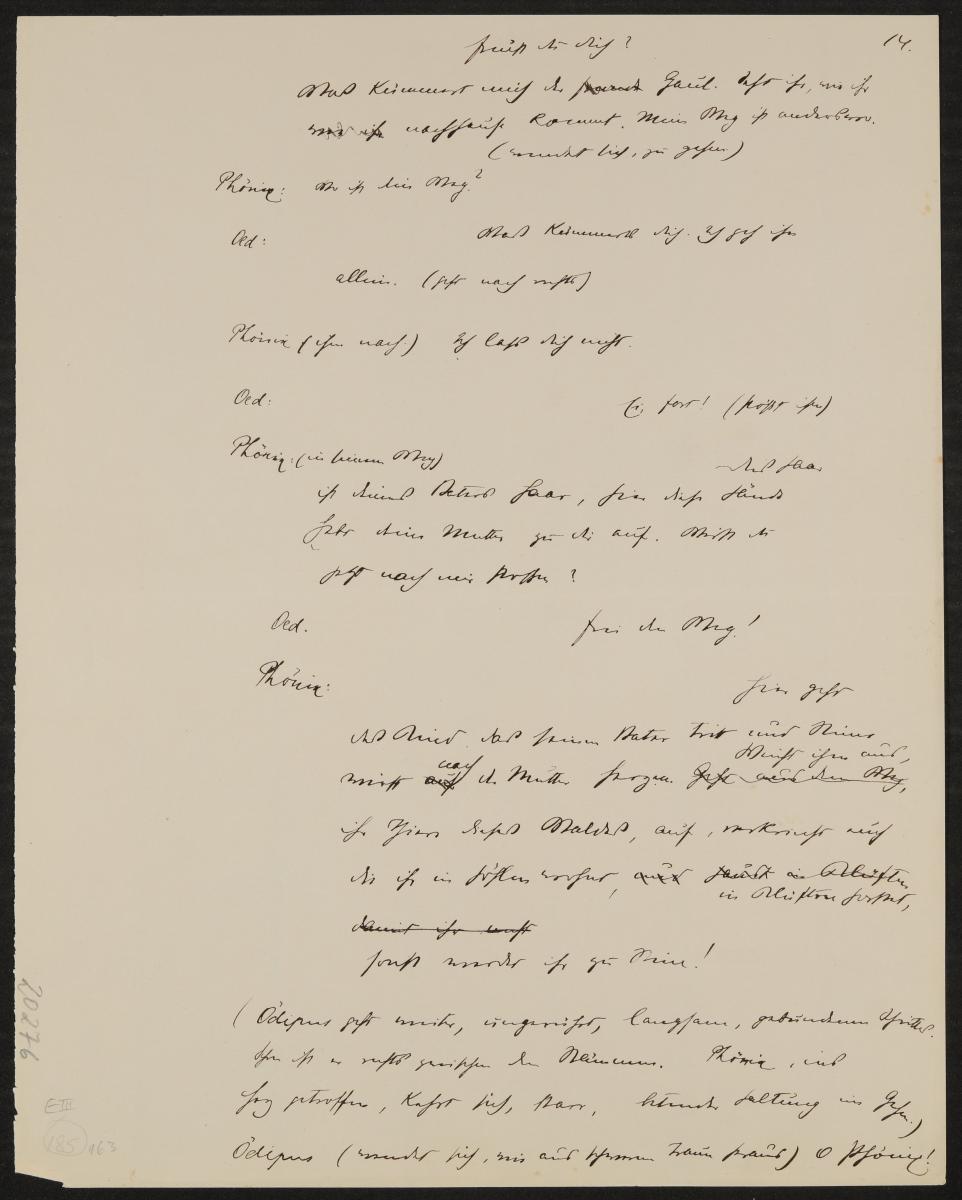 14.
hüllst du dich?
Was kümmert mich der Gaul. Seht ihr, wie ihr
nachhause kommt. Mein Weg ist anderswo.
(wendet sich, zu gehen)
Phönix: Wo ist dein Weg?
Oed: Was kümmerts dich. Ich geh ihn
allein. (geht nach rechts)
Phönix (ihm nach) Ich lass dich nicht.
Oed: fort! (stößt ihn)
Phönix: (in seinem Weg) das Haar
ist deines Vaters Haar, hier diese Hände
hebt deine Mutter zu dir auf. Wirst du
jetzt nach mir stoßen?
Oed. frei den Weg!
Phönix: Hier geht
das Kind, das seinen Vater tritt und seine
Weicht ihm aus,
nach
auf der Mutter aus dem Weg,
ihr Tiere dieses Waldes, auf, verkriecht euch
die ihr in Höhlen wohnet, und haust in Klüften
in Klüften horstet,
damit ihr nicht
sonst werdet ihr zu Stein!
(Ödipus geht weiter, ungerührt, langsam, gebundenen Schrittes.
Schon ist er rechts zwischen den Stämmen. Phönix, ins
Herz getroffen, kehrt sich, starr, betender Haltung im Gehn.)
Ödipus (wendet sich, wie aus schwerem Traum heraus) O Phönix!
20276
EIII
185
163